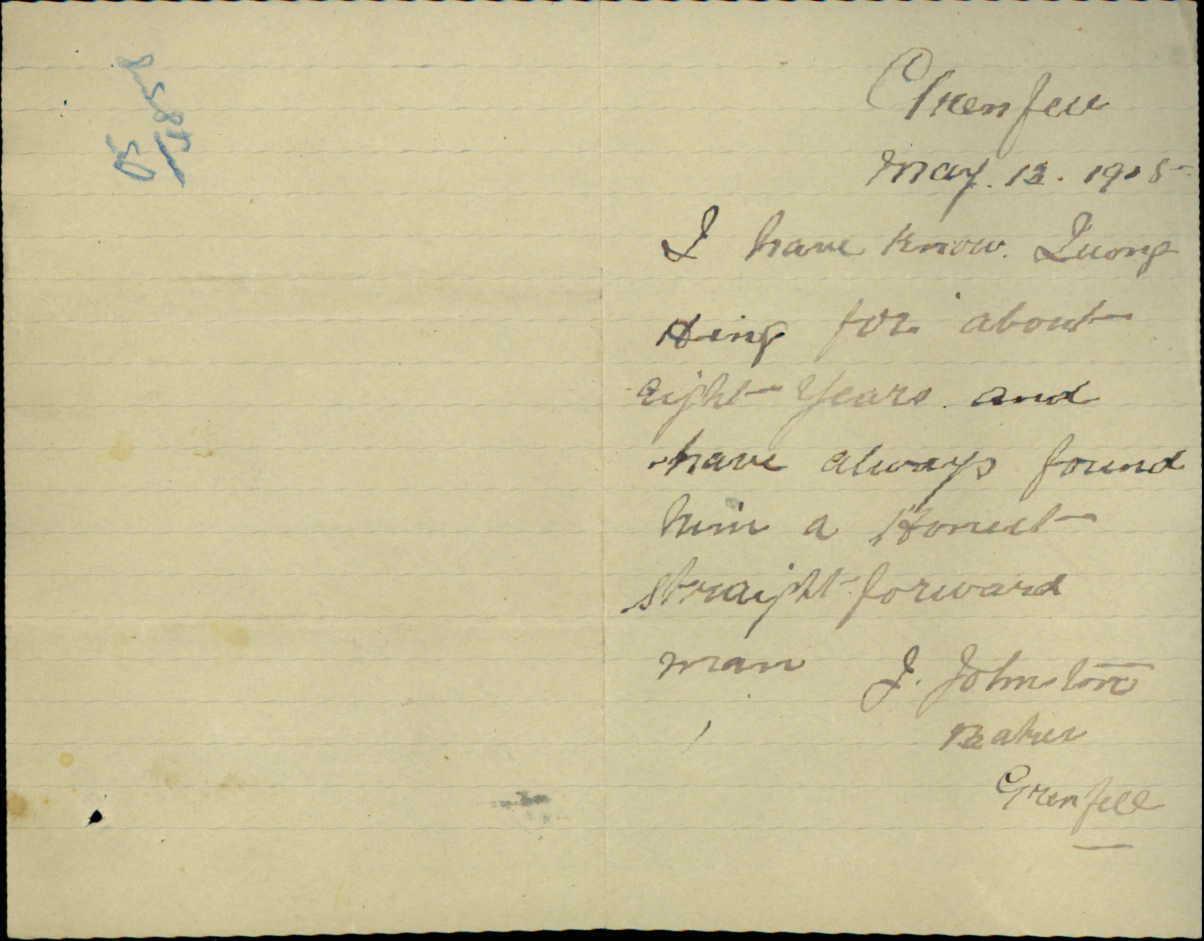 Grenfell
May. 13. 1905
I have know. Quong
Hing for about
eight Years and
have always found
him a Honest
straight forward
man
J. Johnston
Baker
Grenfell